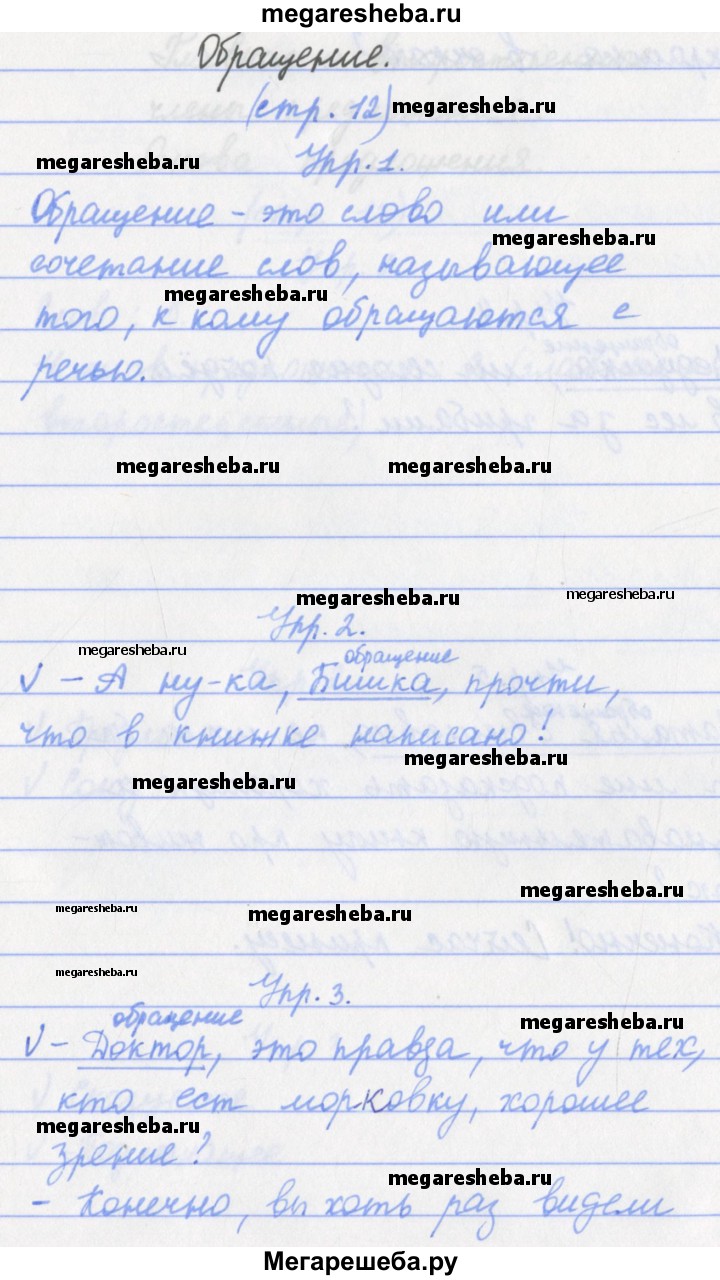 megaresheba.ru
Обращение.
(стр. 12) megaresheba.ru
megaresheba.ru Упр. 1.
Обращение - это слово или
megaresheba.ru
сочетание слов, называющее
megaresheba.ru
того, к кому обращаются с
речью.
megaresheba.ru megaresheba.ru
megaresheba.ru megaresheba.ru
Упр. 2.
megaresheba.ru обращение
√ - А ну-ка, Бишка, прочти,
что в книжке написано!
megaresheba.ru
megaresheba.ru
megaresheba.ru
megaresheba.ru megaresheba.ru
megaresheba.ru
Упр. 3.
обращение megaresheba.ru
√ - Доктор, это правда, что у тех,
кто ест морковку, хорошее
megaresheba.ru
зрение?
megaresheba.ru
- Конечно, вы хоть раз видели
Мегарешеба.ру